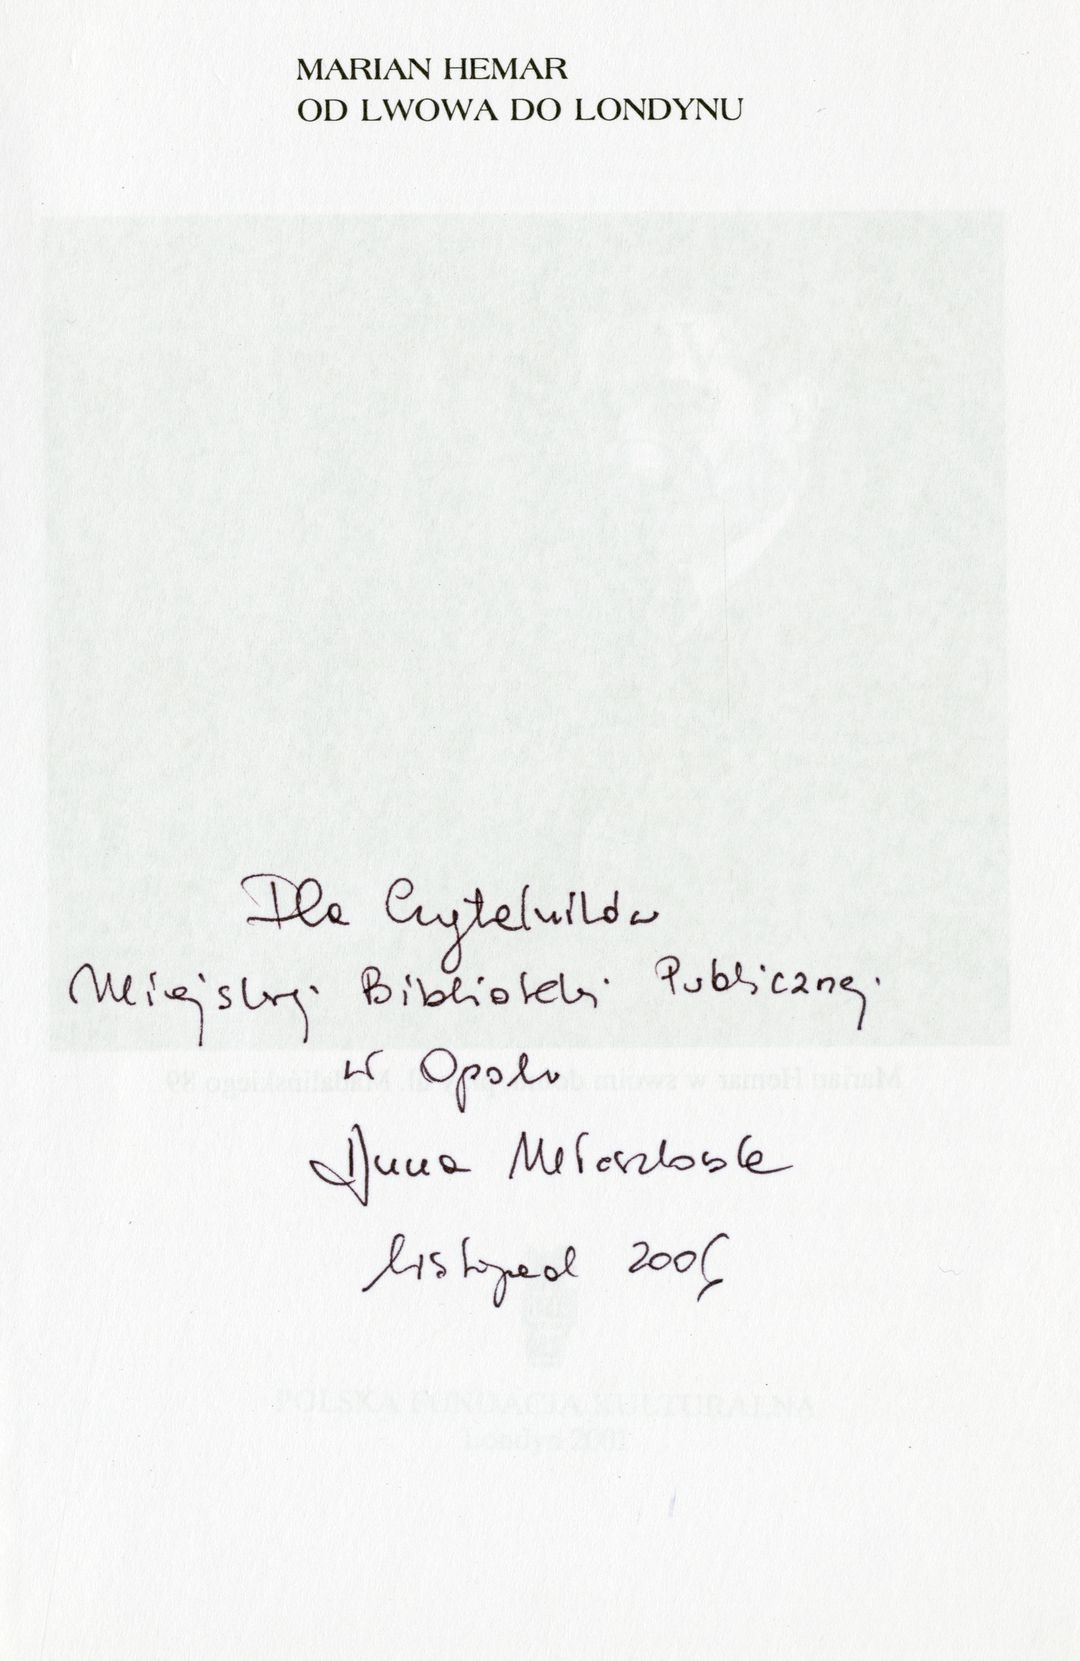 MARIAN HEMAR
OD LWOWA DO LONDYNU
Dla Czytelników
Miejskiej Biblioteki Publicznej
w Opolu
Anna Mieszkowska
listopad 2005
Marian Hemar w swoim ul. Madalińskiego 89
POLSKA FUNDACJA KULTURALNA
Londyn 2001